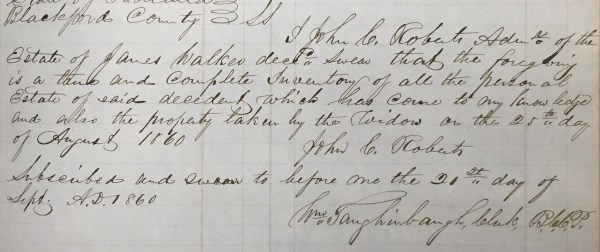 Blackford County } SS
I John C. Roberts Admr of the
Estate of James Walker decd swear that the foregoing
is a true and Complete Inventory of all the personal
Estate of said decedent which has come to my knowledge
and also the property taken by the Widow on the 25th day
of August 1860
John C. Roberts
Subscribed and sworn to before me the 20th day of
Sept. A.D. 1860
Wm Taughinbaugh, Clerk, B.C.C.P.